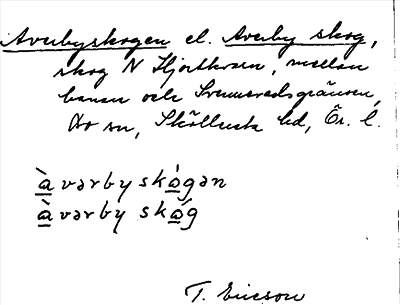 Averbyskogen el. Averby skog,
skog N Hjortkvarn, mellan
banan och Svennevadsgränsen,
Bo sn, Sköllersta hd, Ör. l.
àvərby skó̱gən
àvərby skó̱g
T. Ericson